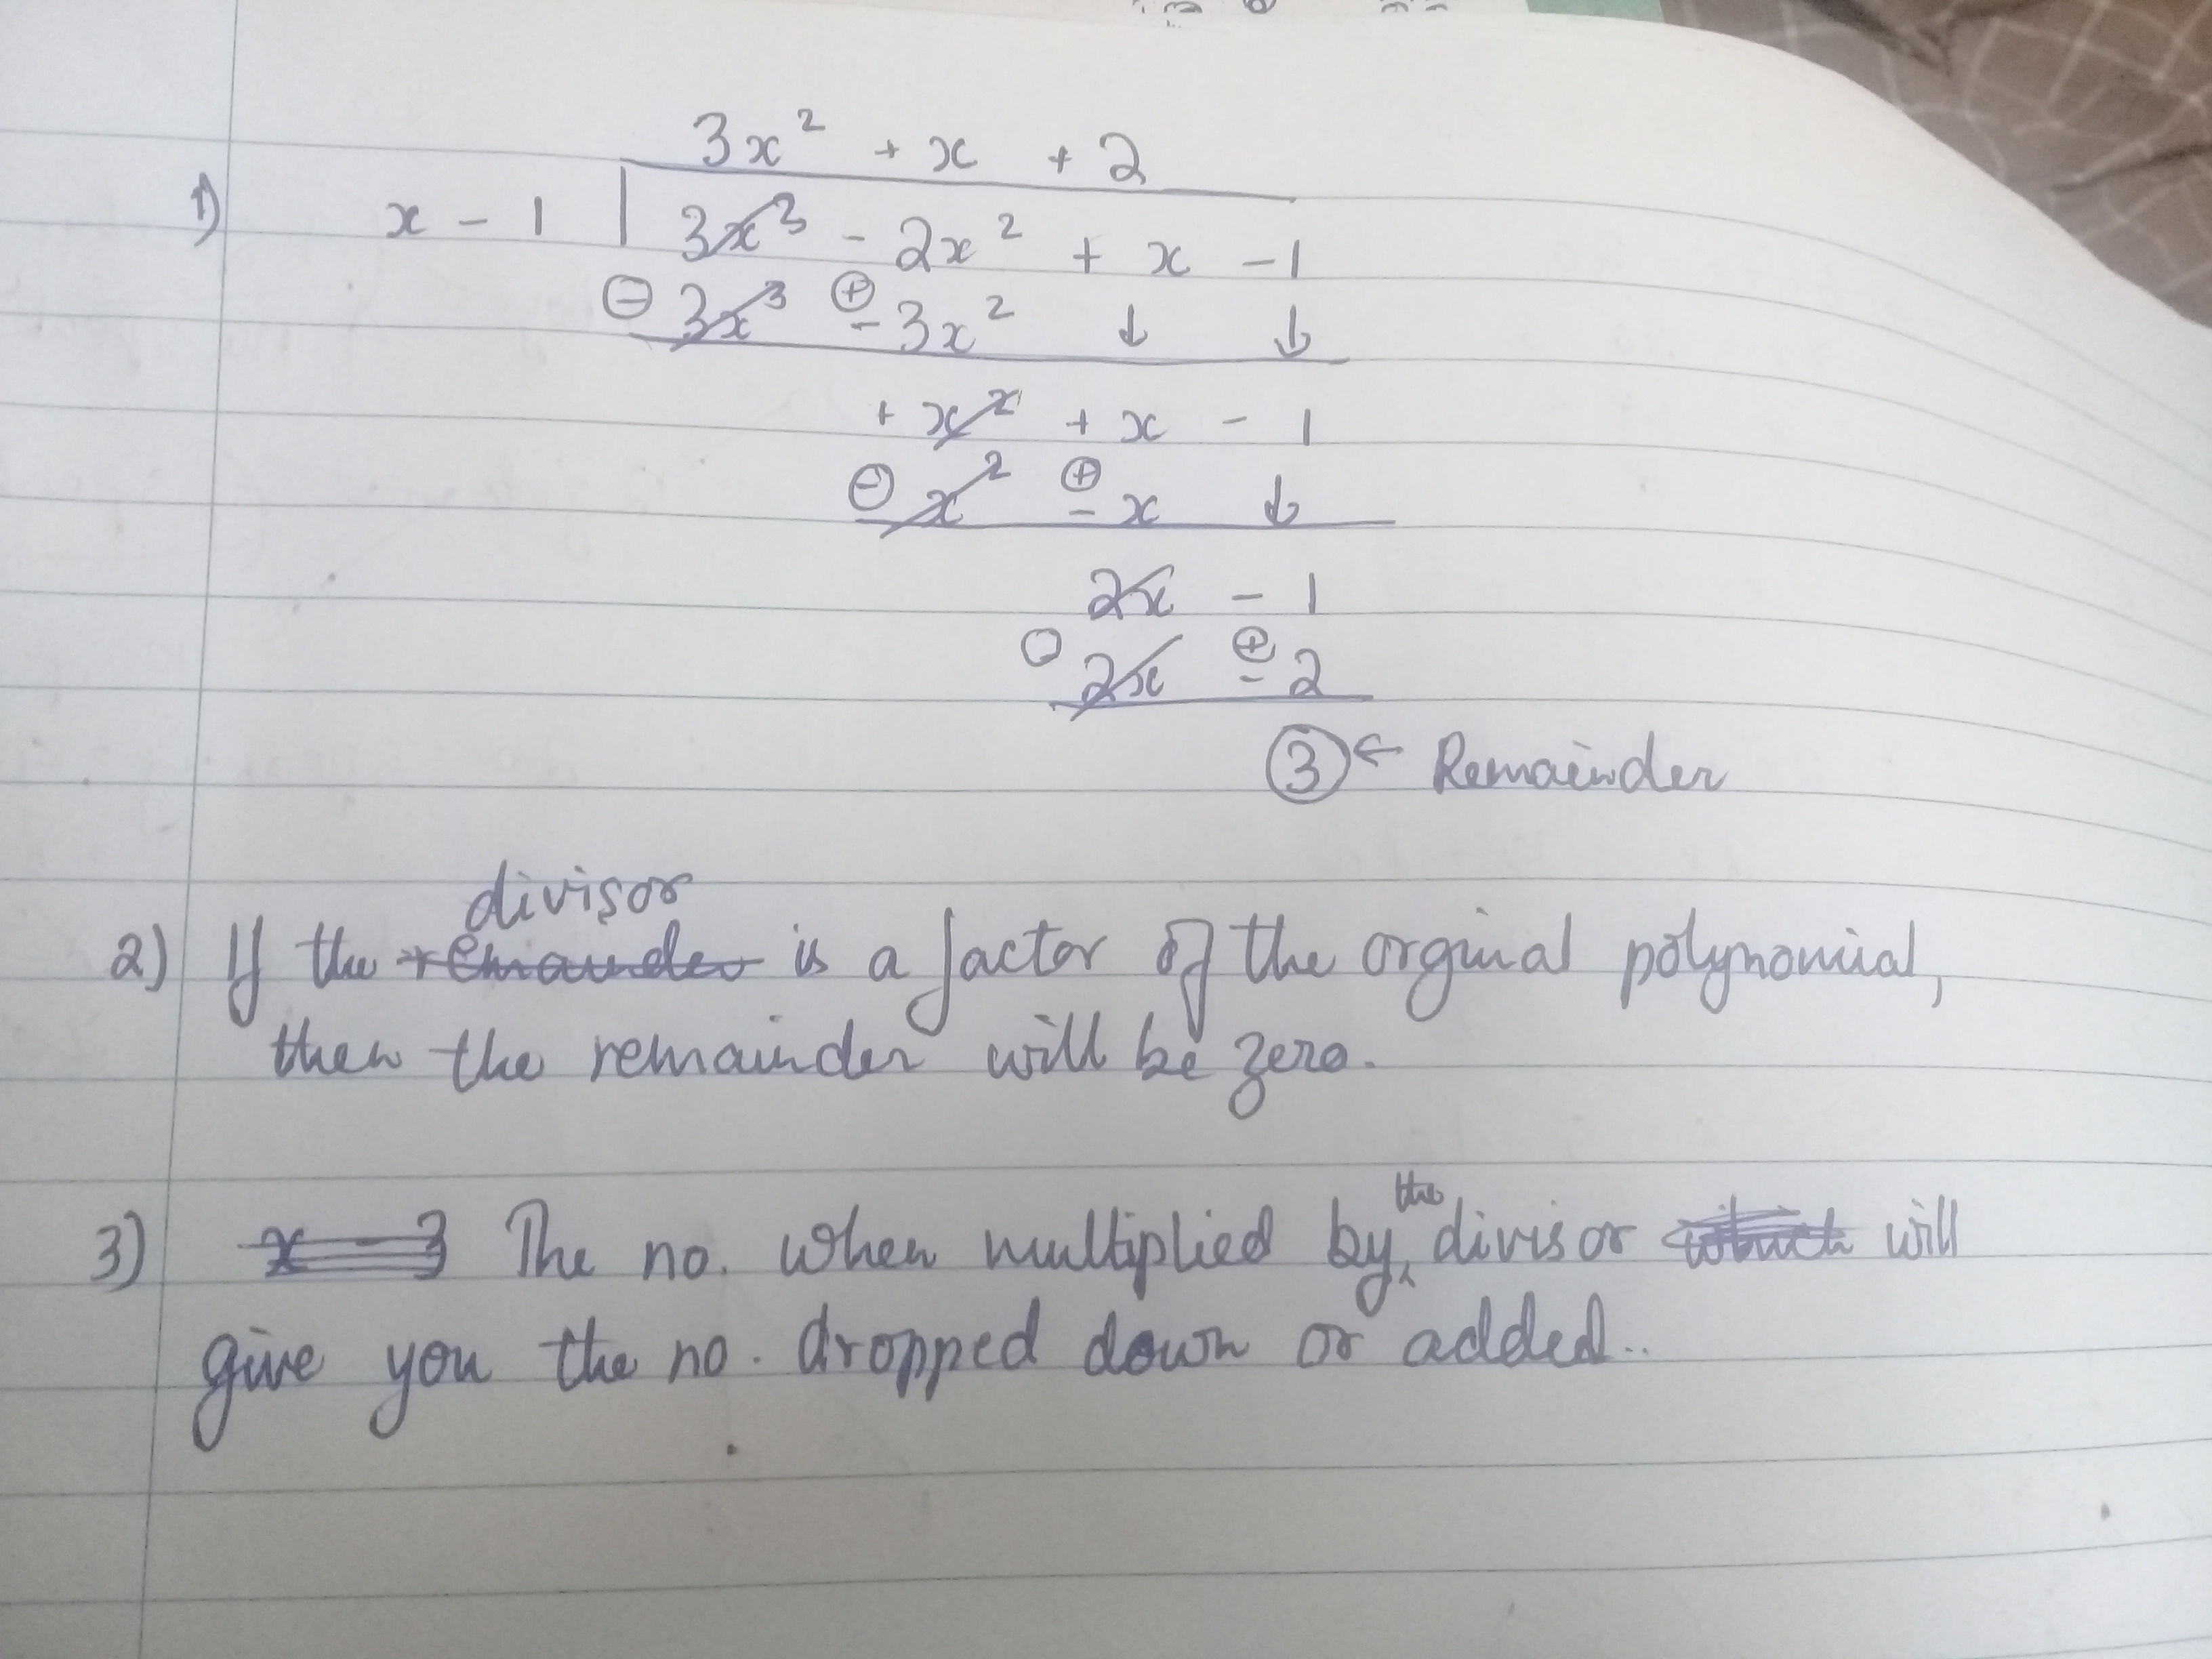 3x² + x + 2
1) x - 1 | 3x³ - 2x² + x - 1
⊖ 3x³ ⊕ - 3x² ↓ ↓
+ x² + x - 1
⊖ x² ⊕ - x ↓
2x - 1
2x ⊕ - 2
3 ← Remainder
divisor
2) If the remainder is a factor of the orginal polynomial,
then the remainder will be zero.
the
3) x - 3 The no. when multiplied by divisor which will
give you the no. dropped down or added..